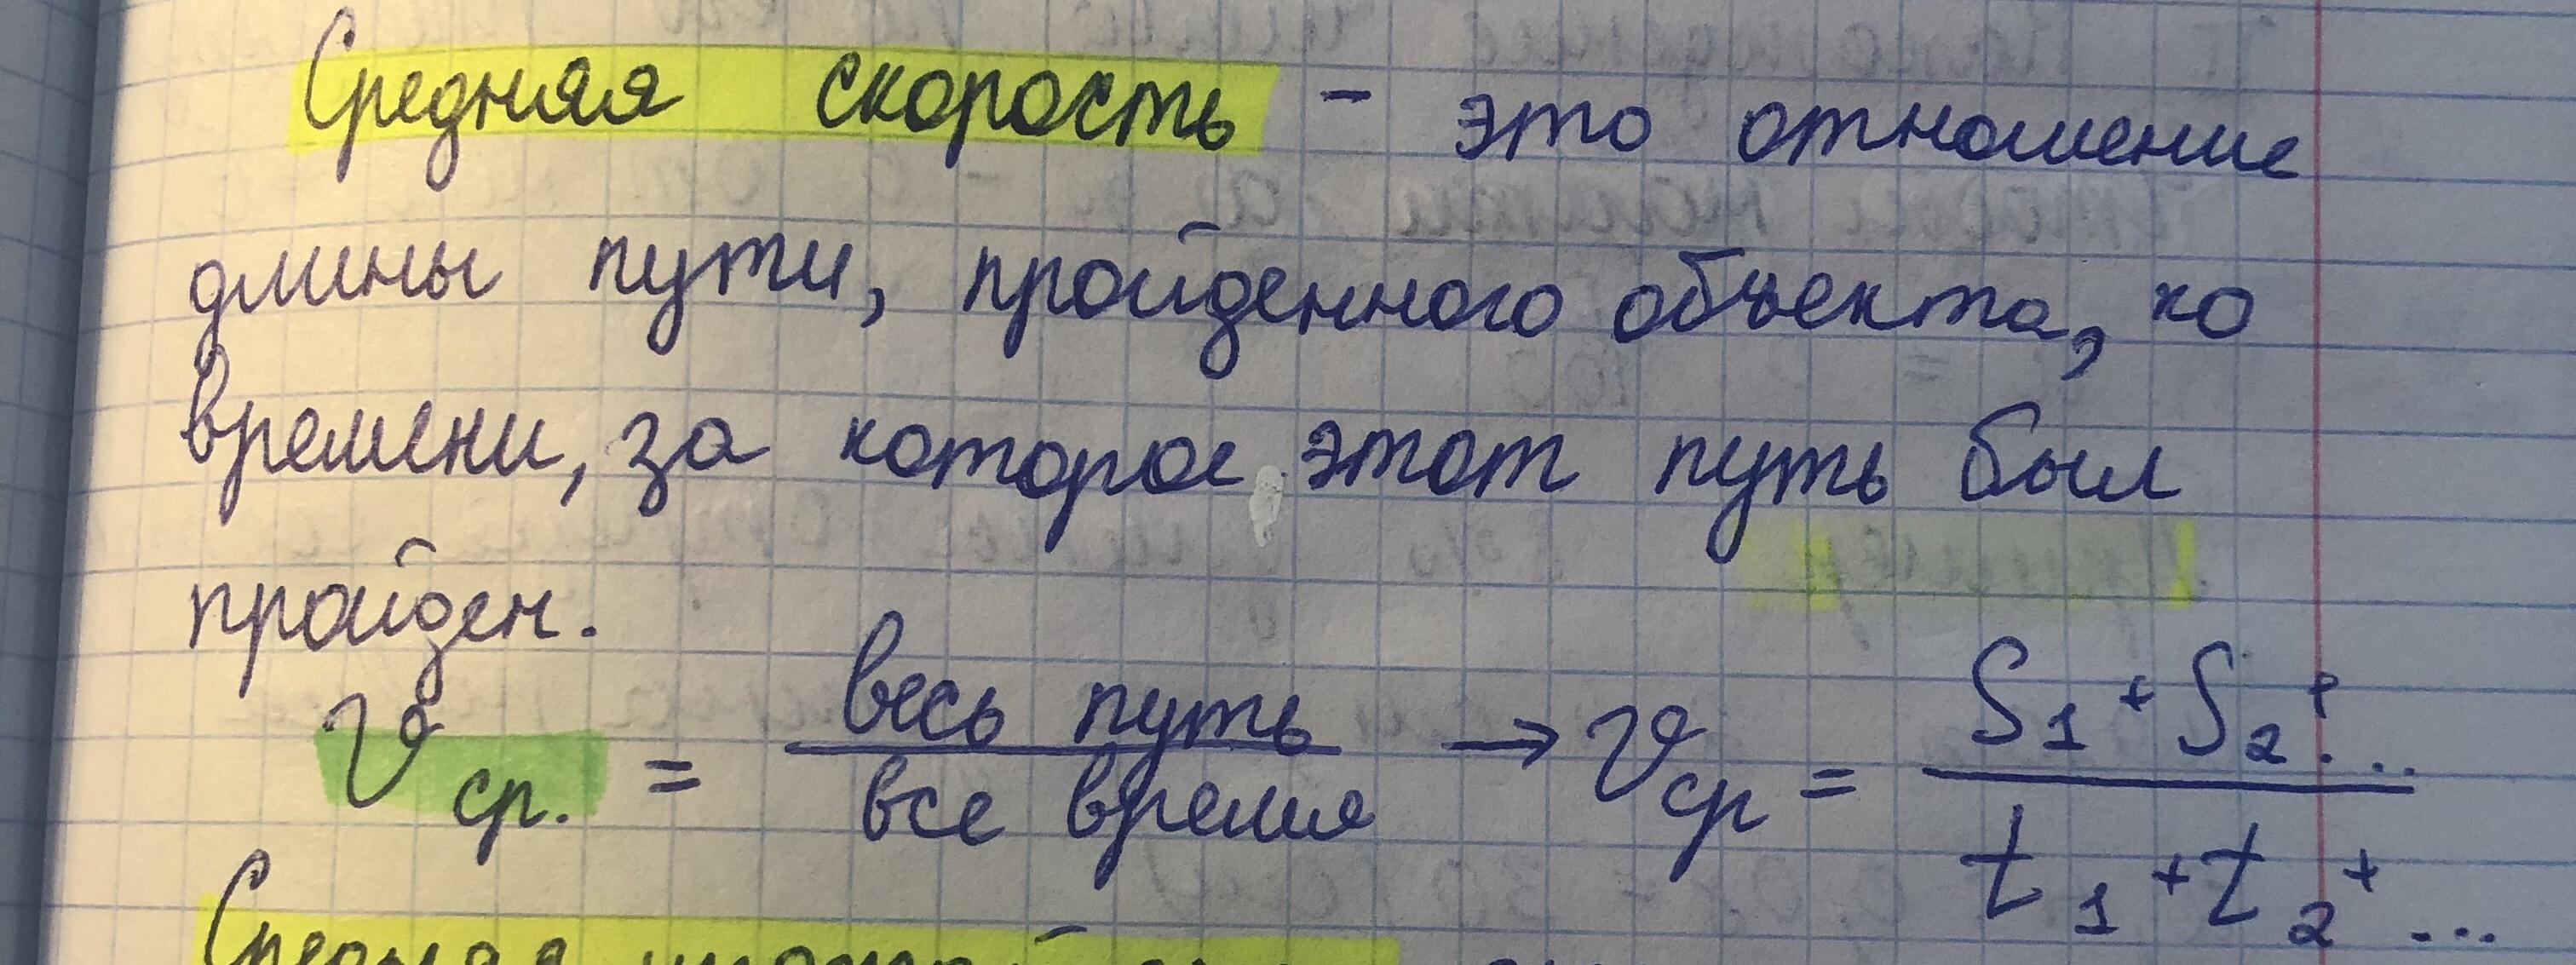 Средняя скорость - это отношение
длины пути, пройденного объекта, ко
времени, за которое этот путь был
пройден.
v ср. = весь путь / все время → v ср = S1 + S2 + ... / t1 + t2 + ...
Средняя